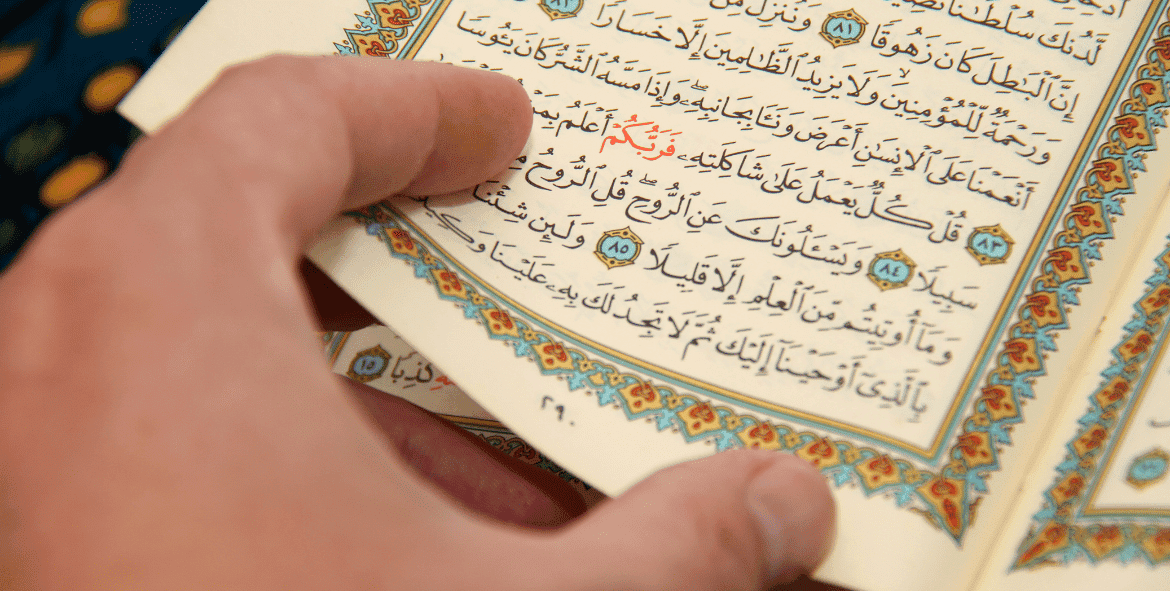 لَّدُنكَ سُلْطَٰنًا
إِنَّ ٱلْبَٰطِلَ كَانَ زَهُوقًا ٨١ وَنُنَزِّلُ مِنَ
وَرَحْمَةٌ لِّلْمُؤْمِنِينَ وَلَا يَزِيدُ ٱلظَّٰلِمِينَ إِلَّا خَسَارًا ٨٢
أَنْعَمْنَا عَلَى ٱلْإِنسَٰنِ أَعْرَضَ وَنَـَٔا بِجَانِبِهِۦ ۖ وَإِذَا مَسَّهُ ٱلشَّرُّ كَانَ يَـُٔوسًا
٨٣ قُلْ كُلٌّ يَعْمَلُ عَلَىٰ شَاكِلَتِهِۦ فَرَبُّكُمْ أَعْلَمُ بِمَنْ
سَبِيلًا ٨٤ وَيَسْـَٔلُونَكَ عَنِ ٱلرُّوحِ ۖ قُلِ ٱلرُّوحُ
وَمَآ أُوتِيتُم مِّنَ ٱلْعِلْمِ إِلَّا قَلِيلًا ٨٥ وَلَئِن شِئْنَا
بِٱلَّذِىٓ أَوْحَيْنَآ إِلَيْكَ ثُمَّ لَا تَجِدُ لَكَ بِهِۦ عَلَيْنَا وَكِيلًا
٢٩٠
كَذِبًا ١٥